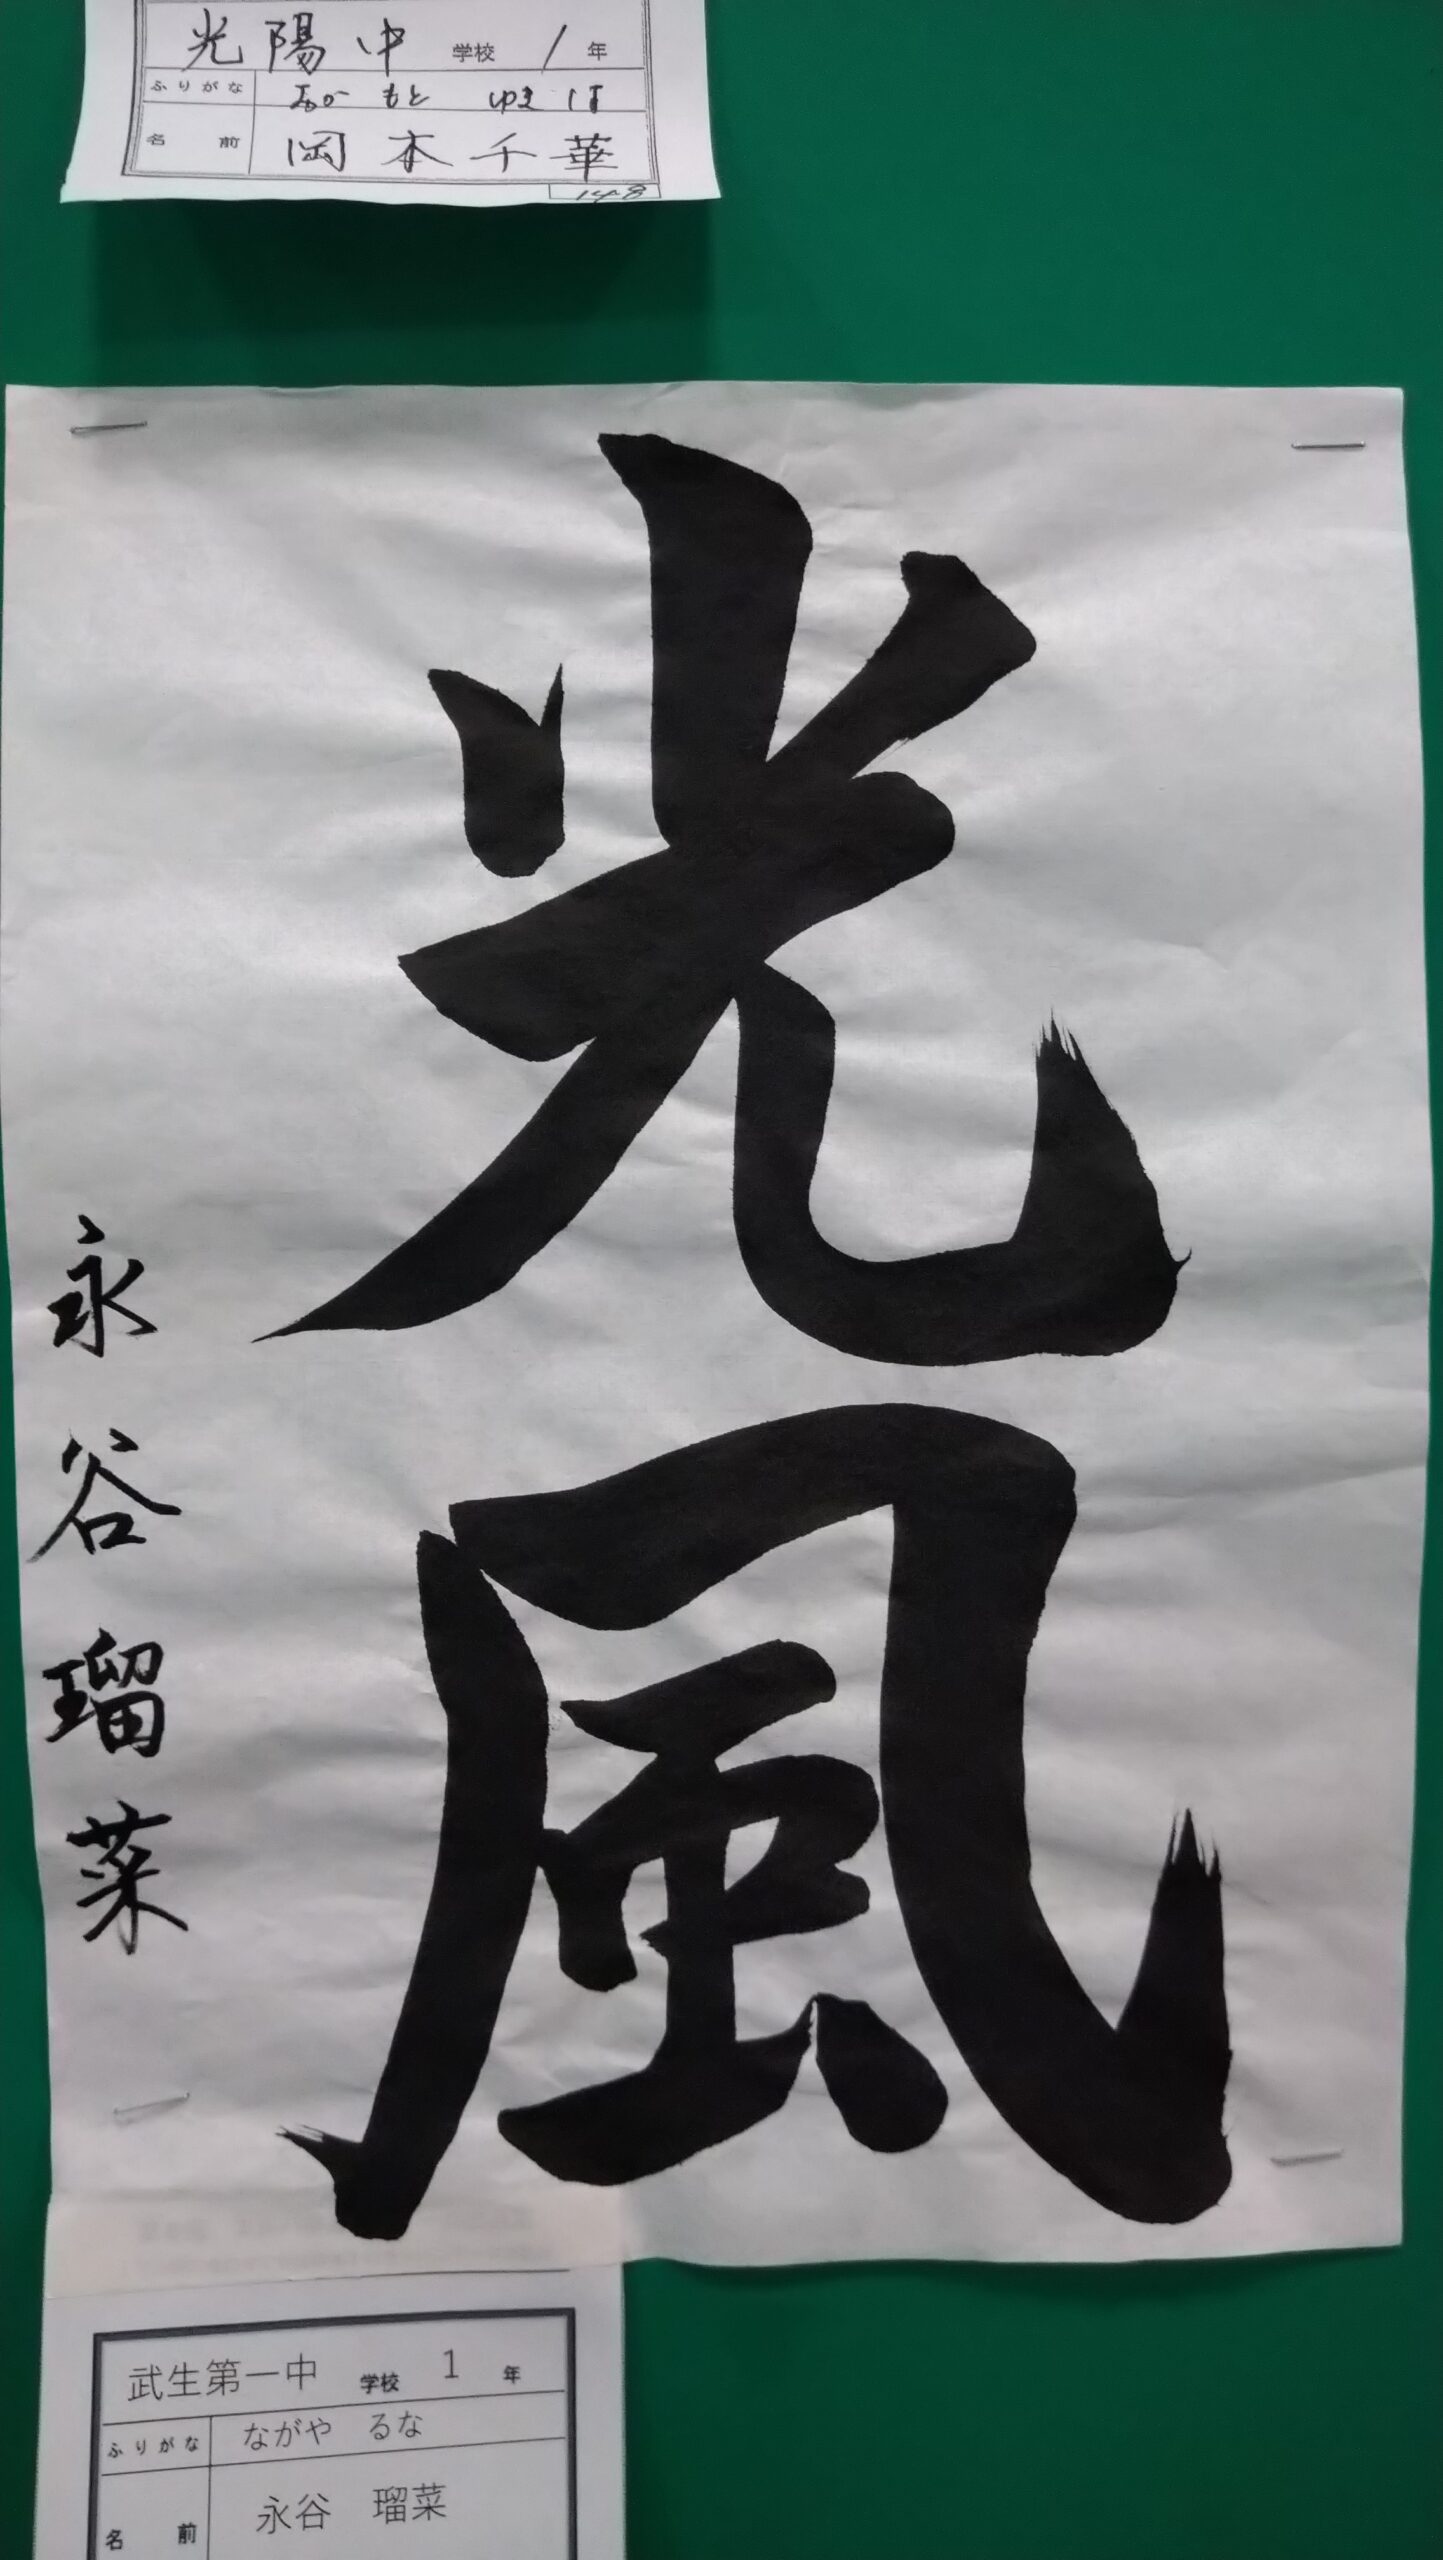 光陽中 学校 1 年
ふりがな おか もと
名前 岡本千華
148
光風
永谷瑠菜
武生第一中 学校 1 年
ふりがな ながや るな
名前 永谷 瑠菜